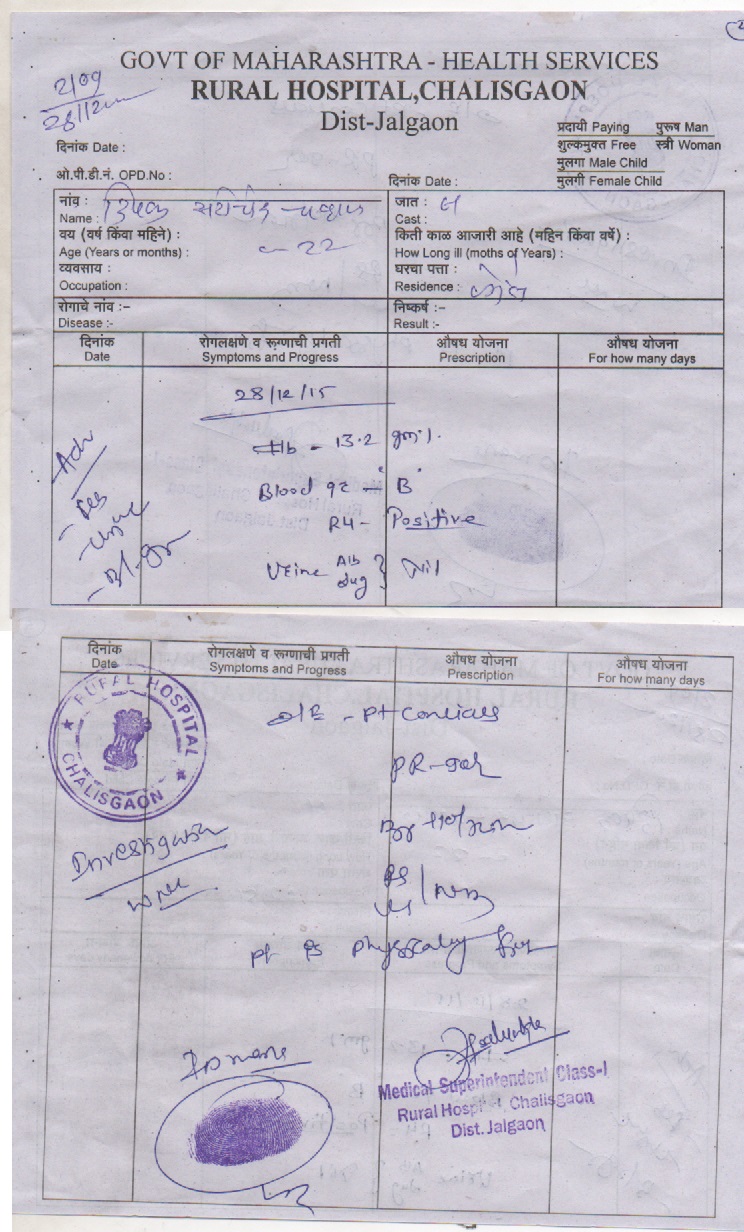 GOVT OF MAHARASHTRA - HEALTH SERVICES
RURAL HOSPITAL,CHALISGAON
Dist-Jalgaon
2109
28/12
दिनांक Date :
प्रदायी Paying पुरूष Man
शुल्कमुक्त Free स्त्री Woman
मुलगा Male Child
मुलगी Female Child
ओ.पी.डी.नं. OPD.No :
दिनांक Date :
नांव :
Name :
जात :
Cast :
वय (वर्ष किंवा महिने) :
Age (Years or months) : 22
किती काळ आजारी आहे (महिन किंवा वर्षे) :
How Long ill (moths of Years) :
व्यवसाय :
Occupation :
घरचा पत्ता :
Residence :
रोगाचे नांव :-
Disease :-
निष्कर्ष :-
Result :-
दिनांक रोगलक्षणे व रूग्णाची प्रगती औषध योजना औषध योजना
Date Symptoms and Progress Prescription For how many days
28/12/15
Hb - 13.2 gm%
Blood gr - "B"
RH - Positive
Urine Alb Sug } Nil
Adv
- Urine
- Bl. gr
दिनांक रोगलक्षणे व रुग्णाची प्रगती औषध योजना औषध योजना
Date Symptoms and Progress Prescription For how many days
RURAL HOSPITAL
CHALISGAON
O/E - Pt Conscious
PR -
Investigation
WNL
Pt is physically fit
Medical Superintendent Class-I
Rural Hospital, Chalisgaon
Dist. Jalgaon